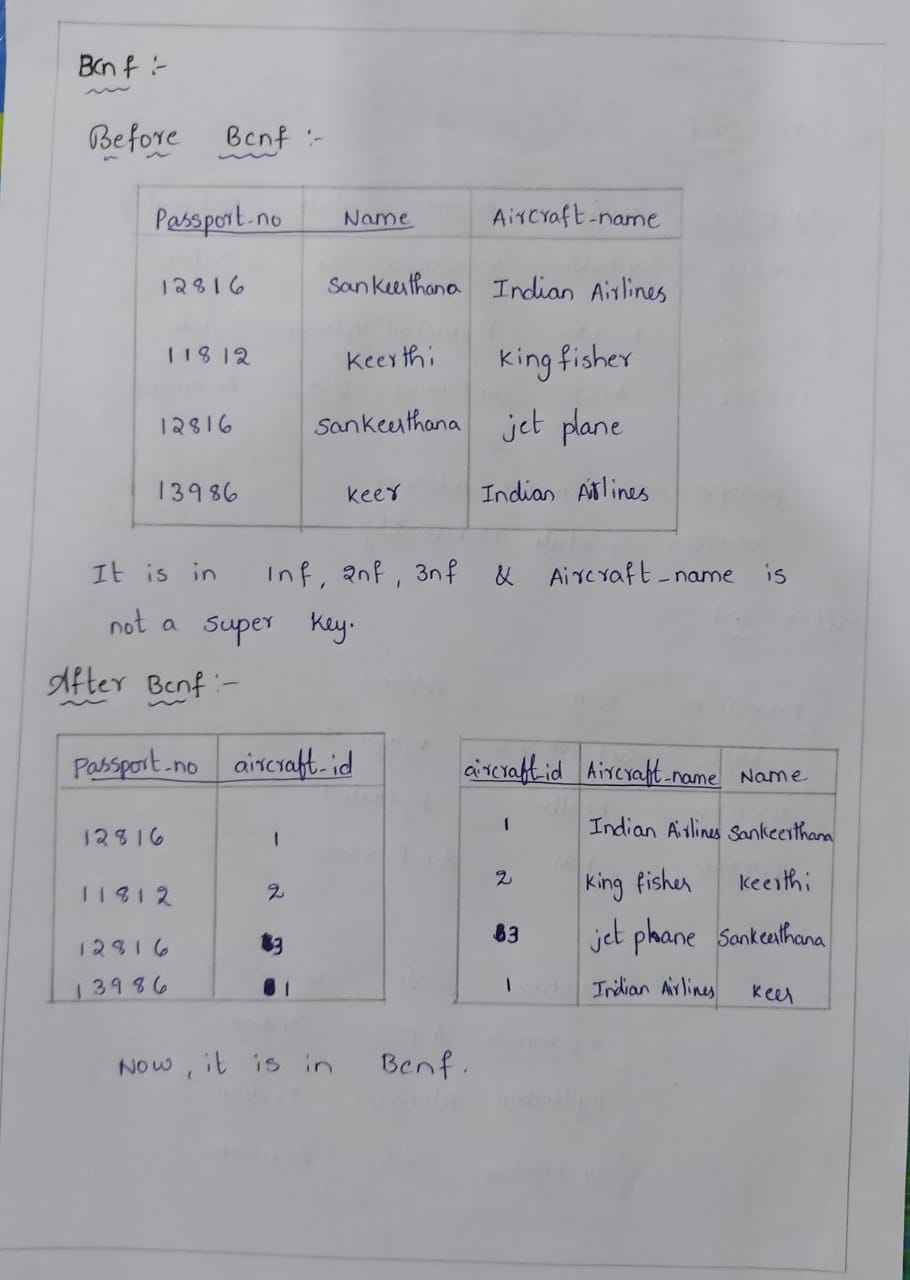 Bcnf :-
Before Bcnf :-
Passport-no Name Aircraft-name
12816 Sankeerthana Indian Airlines
11812 Keerthi King fisher
12816 Sankeerthana jet plane
13986 Keer Indian Airlines
It is in 1nf, 2nf, 3nf & Aircraft-name is
not a super key.
After Bcnf :-
Passport-no aircraft-id
12816 1
11812 2
12816 3
13986 1
aircraft-id Aircraft-name Name
1 Indian Airlines Sankeerthana
2 King fisher Keerthi
3 jet plane Sankeerthana
1 Indian Airlines Keer
Now, it is in Bcnf.